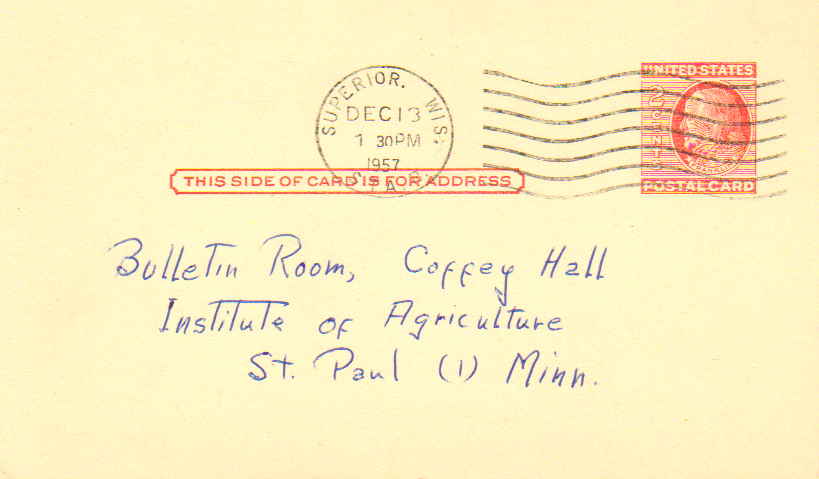 SUPERIOR, WIS.
DEC 13
1 30 PM
1957
STA.
UNITED STATES
2 CENTS
POSTAL CARD
THIS SIDE OF CARD IS FOR ADDRESS
Bulletin Room, Coffey Hall
Institute of Agriculture
St. Paul (1) Minn.